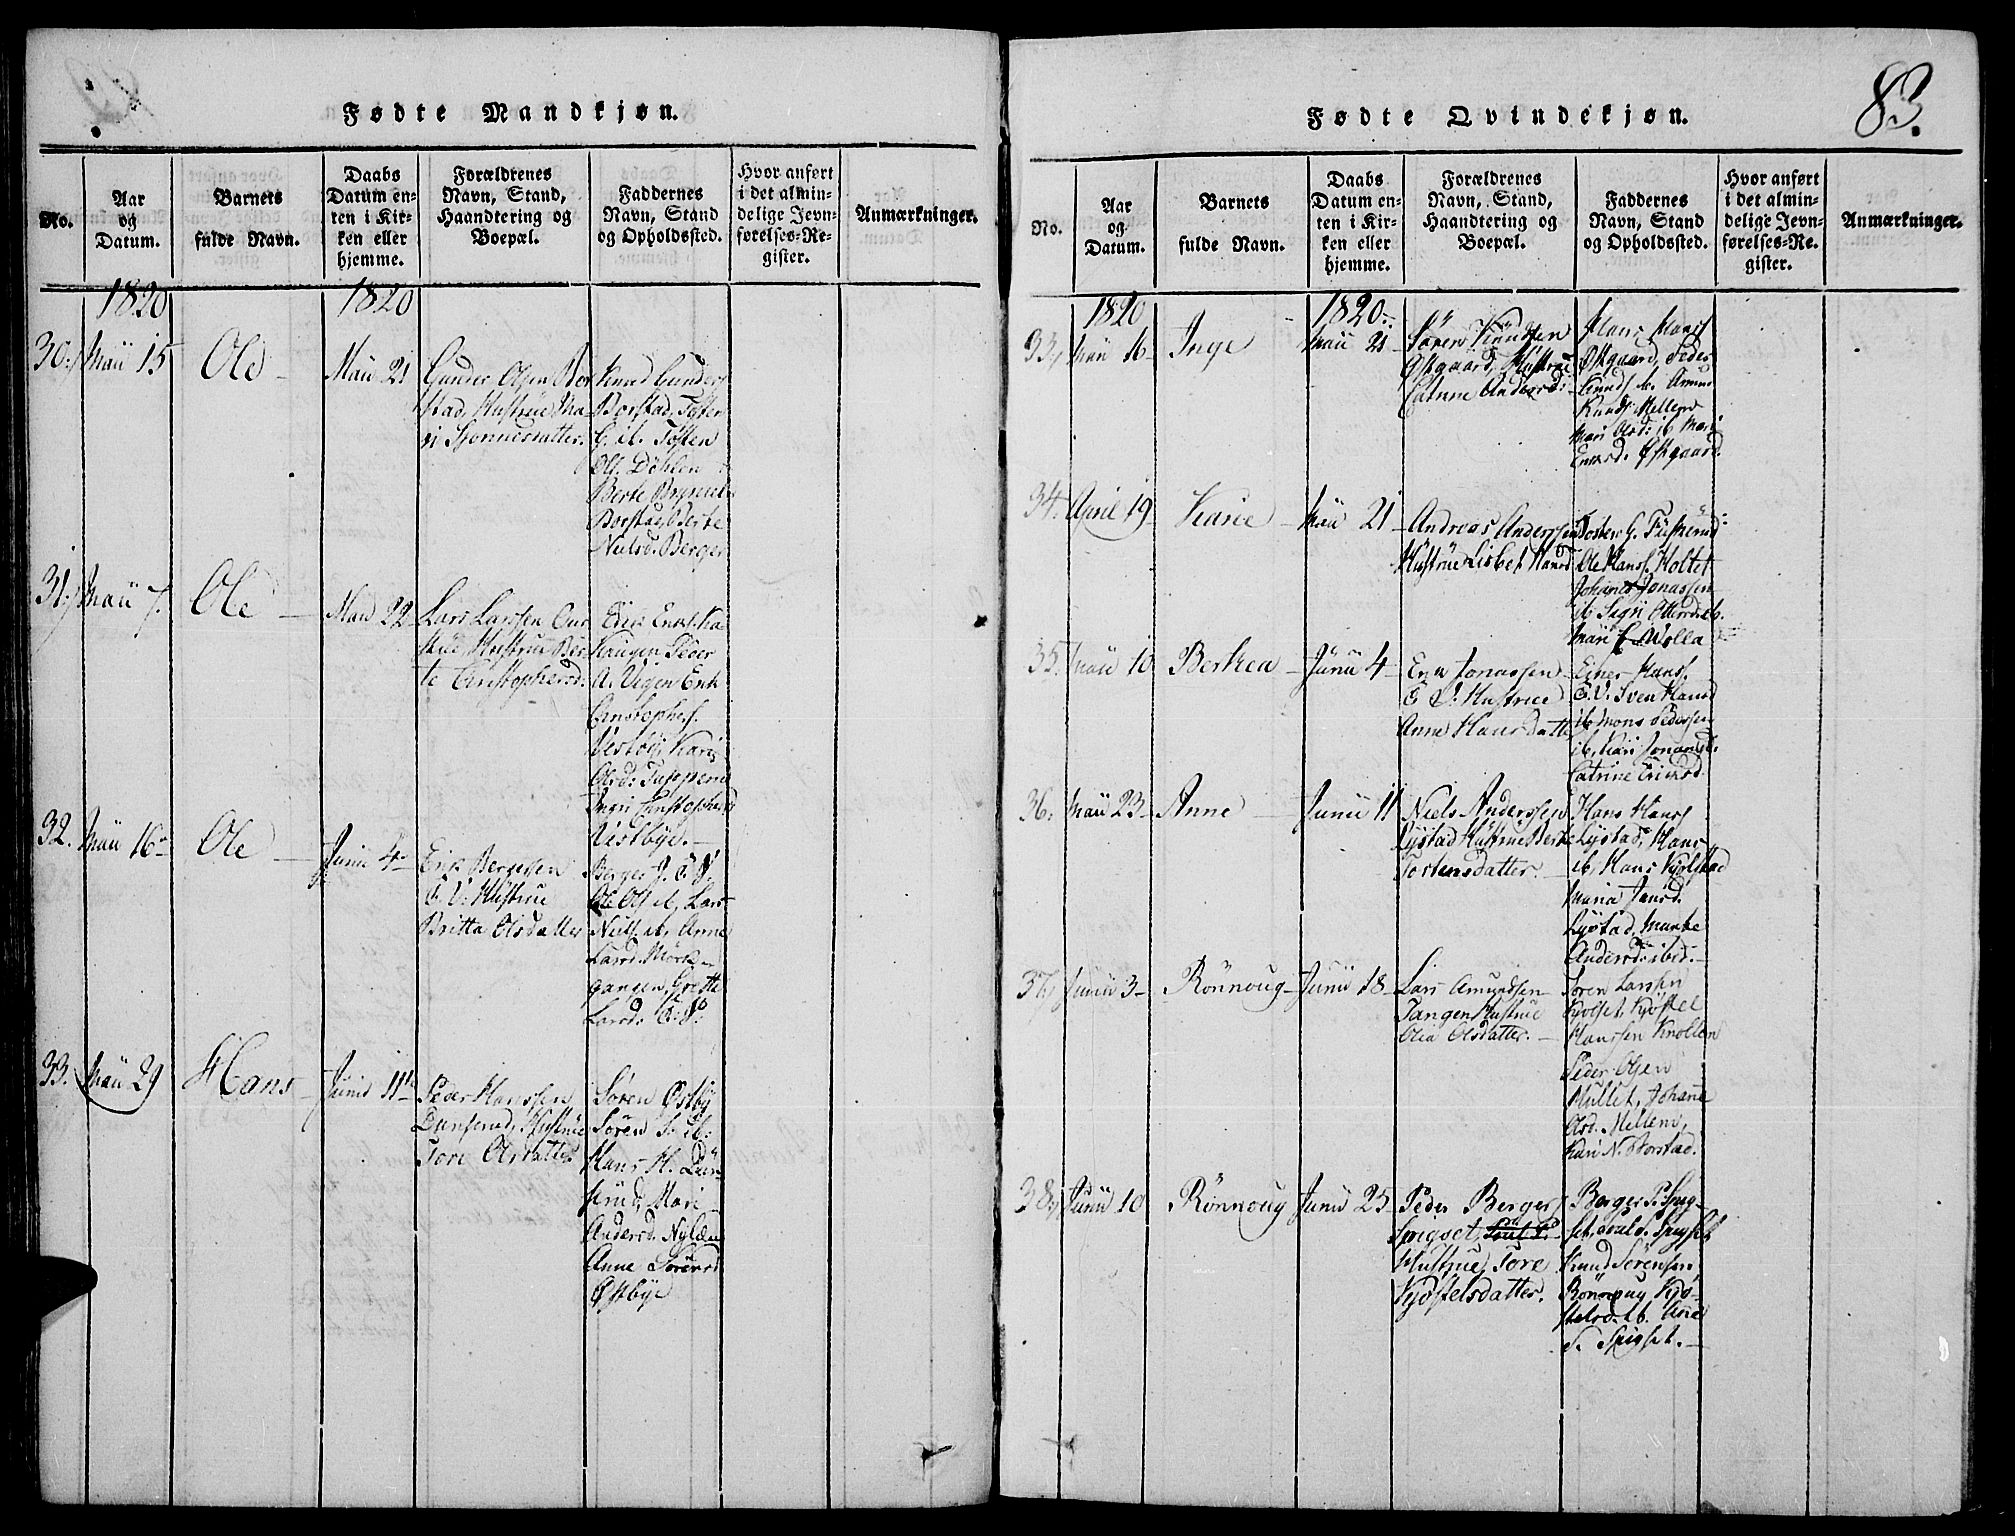 Fødte Mandkjøn.
No.
Aar
og
Datum.
Barnets
fulde Navn.
Daabs
Datum en-
ten i Kir-
ken eller
hjemme.
Forældrenes
Navn, Stand,
Haandtering og
Boepæl.
Faddernes
Navn, Stand
og Opholdssted.
Hvor anført
i det almin-
delige Jevn-
førelses-Re-
gister.
Anmærkninger.
1820
1820
30.
Maii 15
Ole
Maii 21
Gunder Olsen Bor
stad, Hustrue Ma
Knud Gunders
Borstad,
G. ib. Tosten
Ols. Döhlen
Berte
Borstad, Berte
Nielsd. Berger
31.
Maii 7.
Ole
Maii 22
Lars Larssen
Hustrue Ber
te Christophersd.
Haugen Peder
A. Vigen Erik
Christophers.
Kari
Olsd:
Ingri Christophersd
Vestbye.
32.
Maii 16
Ole
Junii 4
Erik Bergersen
E. V. Hustrue
Britta Olsdatter
Berger J. E. V.
Ole Ols. ib, Lars
Niels. ib, Anne
Larsd. Mörk-
gangen, Grette
Larsd: E. V.
33.
Maii 29
Hans
Junii 11
Peder Hanssen
Hustrue
Tore Olsdatter
Sören Østby
Sören S. ib:
Hans H.
Mari
Andersd.
Anne Sörensd
Østbye
83.
Fødte Qvindekjøn.
No.
Aar
og
Datum.
Barnets
fulde Navn.
Daabs
Datum en-
ten i Kir-
ken eller
hjemme.
Forældrenes
Navn, Stand,
Haandtering og
Boepæl.
Faddernes
Navn, Stand
og Opholdssted.
Hvor anført
i det almin-
delige Jevn-
førelses-Re-
gister.
Anmærkninger.
1820
1820
33.
Maii 16
Inge
Maii 21
Sören Knudsen
Østgaard, Hustrue
Catrine Andersd:
Hans Hans
Østgaard, Peder
Knuds ib. Amun
Knuds Mellem
Mari Olsd: ib Mari
Østgaard.
34.
April 19
Karie
Maii 21
Andreas Anderssen
Hustrue Lisbet Hansd
Tosten G.
Ole Hans. Holtet
Johannes Jonassen
ib Sigri
Mari E. Wolla
35.
Maii 10
Berthea
Junii 4
Erik Jonassen
E V. Hustrue
Anne Hansdatter
Einer Hans.
E. V. Sven Hansd
ib Mons Pedersen
ib, Kari
Catrine Ericksd.
36.
Maii 23
Anne
Junii 11
Niels Anderssen
Lystad Hustrue Berte
Tostensdatter.
Hans Hans
Lystad, Hans
ib, Hans
Maria Jansd.
Lystad, Marthe
Andersd: ibid.
37.
Junii 3
Rönnoug
Junii 18
Lars Amundsen
Tangen Hustrue
Olea Olsdatter.
Sören Larssen
Kjolset, Kjöstel
Hanssen Knollen
Peder Olsen
Hullet, Johanne
Olsd. Mellem,
Kari N. Borstad.
38.
Junii 10
Rönnoug
Junii 25
Peder Bergers
Spigset,
Hustrue, Tore
Kjöstelsdatter.
Berger P. Spig-
set, Spigset
Knud Sörensen,
Rönnoug Kjö-
stelsd. ib. Ane
S. Spigset.